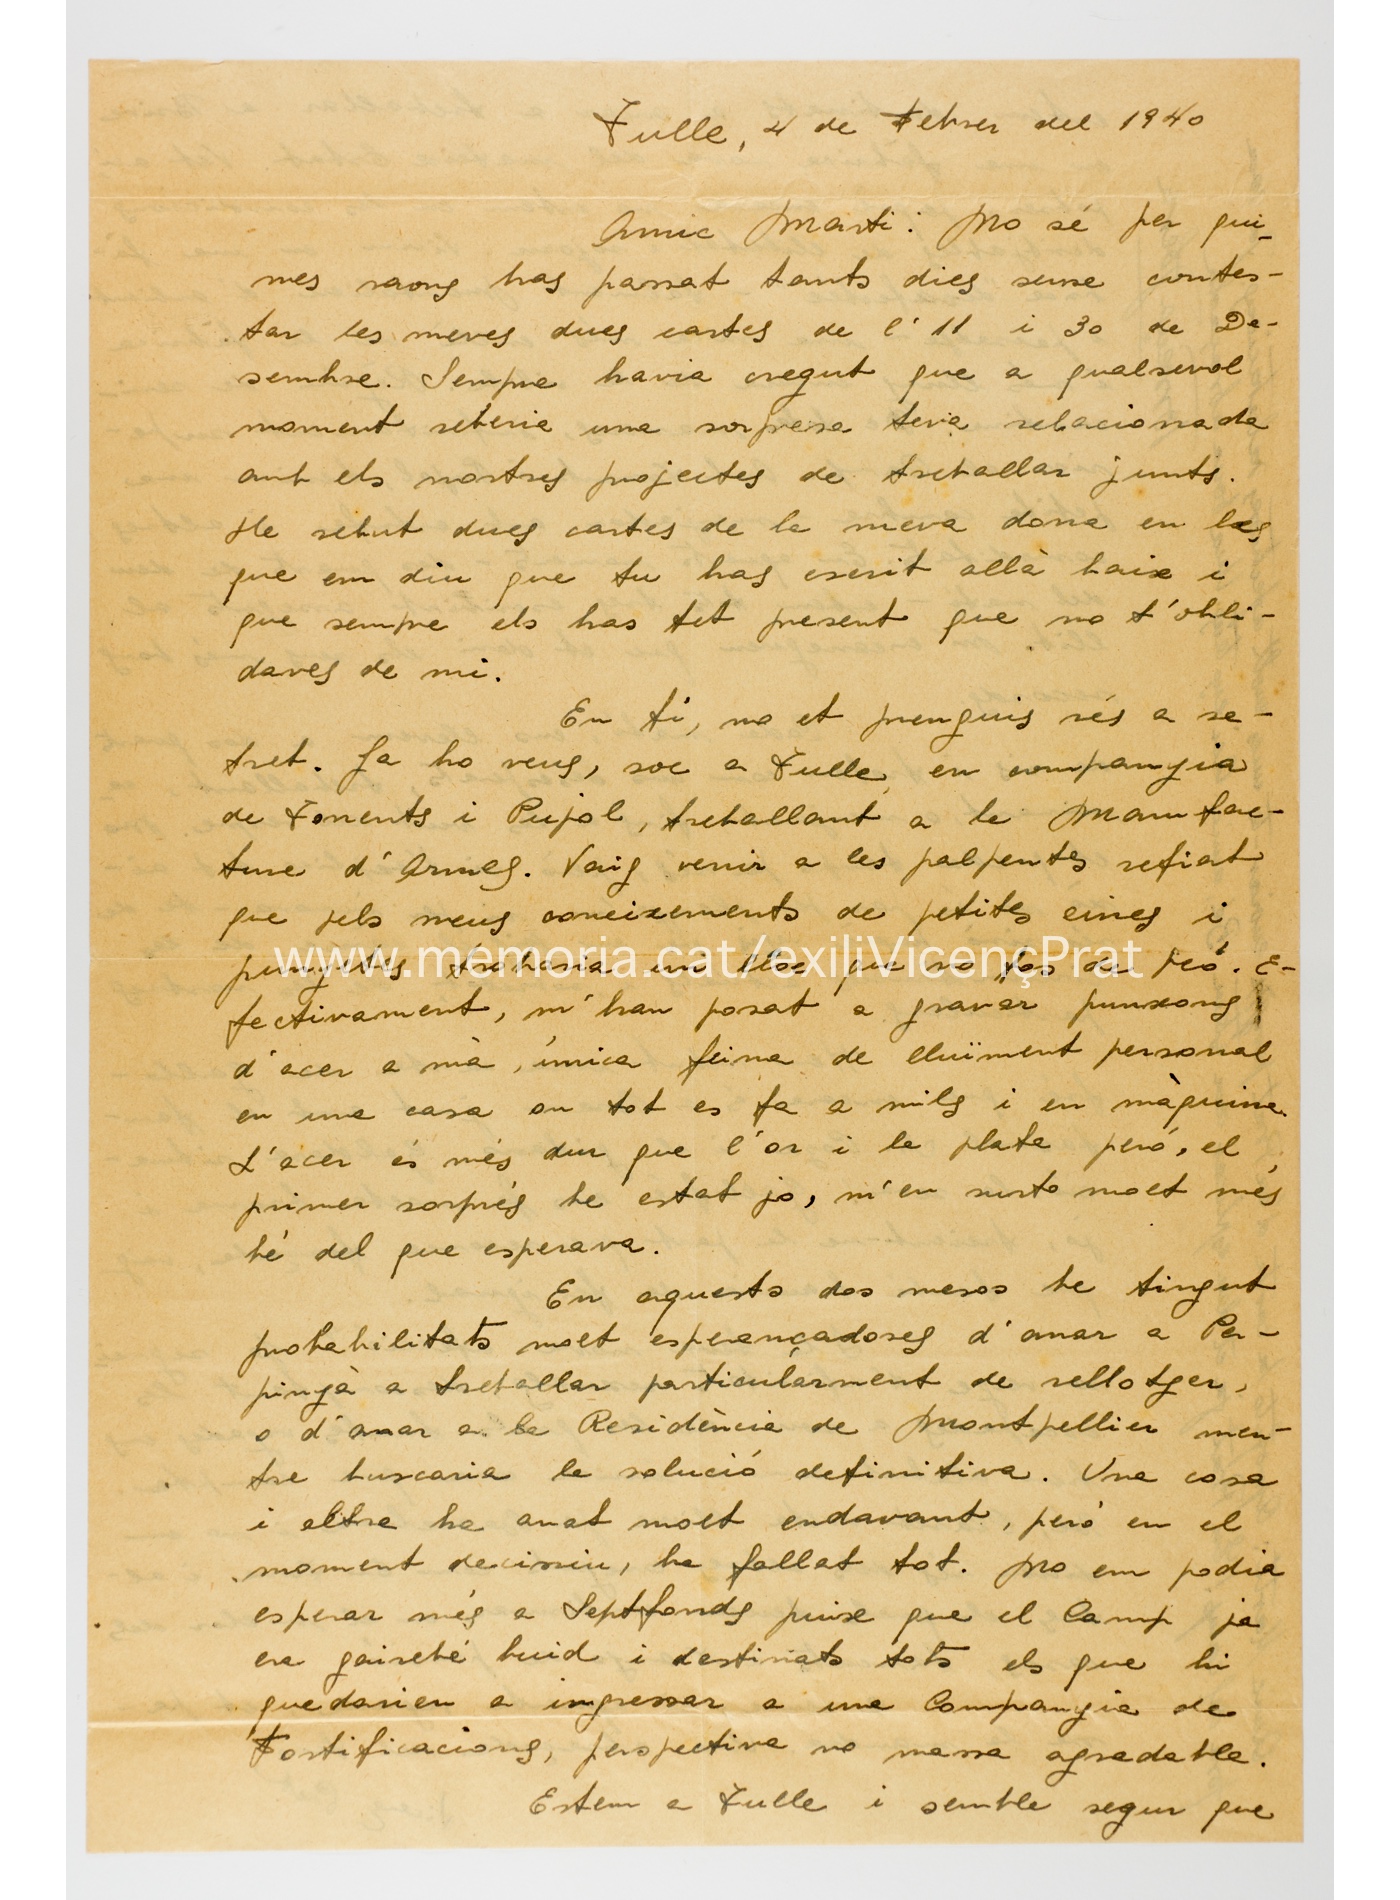 Tulle, 4 de Febrer del 1940
Amic Martí: No sé per qui-
nes raons has passat tants dies sense contes-
tar les meves dues cartes de l'11 i 30 de De-
sembre. Sempre havia cregut que a qualsevol
moment rebria una sorpresa teva relacionada
amb els nostres projectes de treballar junts.
He rebut dues cartes de la meva dona en les
que em diu que tu has escrit allà baix i
que sempre els has fet present que no t'obli-
daves de mi.
En fi, no et prenguis rés a re-
tret. Ja ho veus, soc a Tulle en companyia
de Torrents i Pujol, treballant a la Manufac-
ture d'Armes. Vaig venir a les palpentes refiat
que pels meus coneixements de petites eines i
punyetes trobaria un lloc que no fos de peó. E-
fectivament, m'han posat a gravar punxons
d'acer a mà, única feina de lluïment personal
en una casa on tot es fa a mils i en màquina.
L'acer és més dur que l'or i la plata però, el
primer sorprés he estat jo, m'en surto molt més
bé del que esperava.
En aquests dos mesos he tingut
probabilitats molt esperançadores d'anar a Per-
pinyà a treballar particularment de rellotger,
o d'anar a la Residència de Montpellier men-
tre buscaria la solució definitiva. Una cosa
i altre ha anat molt endavant, però en el
moment decissiu, ha fallat tot. No em podia
esperar més a Septfonds puix que el Camp ja
era gairebé buid i destinats tots els que hi
quedarien a ingressar a una Companyia de
Fortificacions, perspectiva no massa agradable.
Estem a Tulle i sembla segur que
www.memoria.cat/exiliVicençPrat